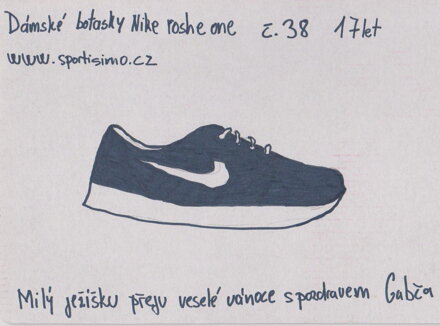 Dámské botasky Nike roshe one č.38 17let
www.sportisimo.cz
Milý ježíšku přeju veselé vánoce s pozdravem Gabča